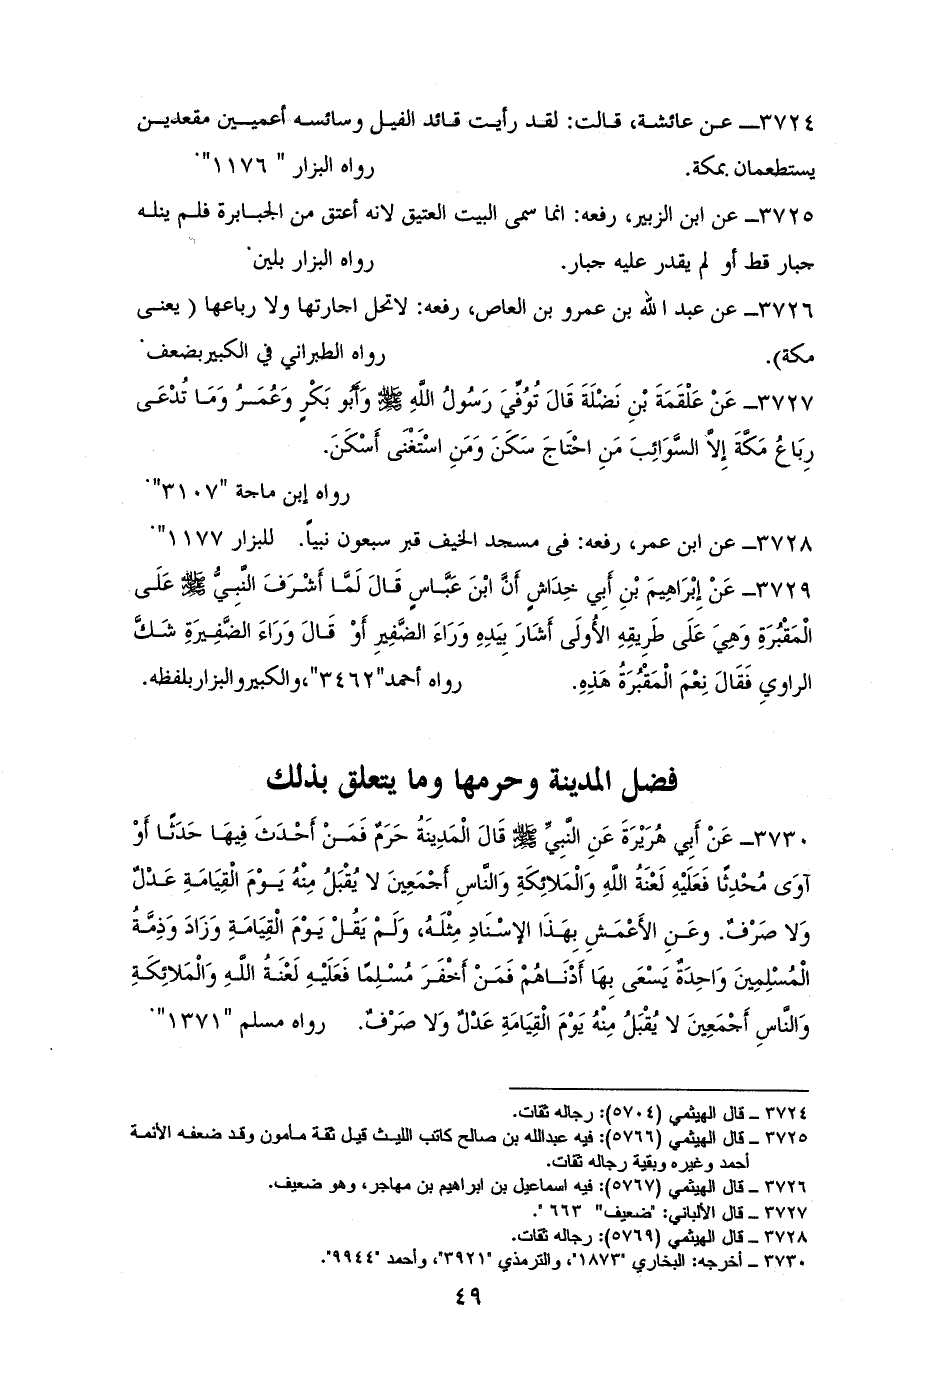 ٣٧٢٤ـ عن عائشة، قالت: لقد رأيت قائد الفيل وسائسه أعميين مقعدين
يستطعمان بمكة. رواه البزار " ١١٧٦".
٣٧٢٥ـ عن ابن الزبير، رفعه: انما سمى البيت العتيق لانه أعتق من الجبابرة فلم ينله
جبار قط أو لم يقدر عليه جبار. رواه البزار بلين.
٣٧٢٦ـ عن عبد الله بن عمرو بن العاص، رفعه: لاتحل اجارتها ولا رباعها ( يعنى
مكة). رواه الطبراني في الكبيربضعف.
٣٧٢٧ـ عَنْ عَلْقَمَةَ بْنِ نَضْلَةَ قَالَ تُوُفِّيَ رَسُولُ اللَّهِ ﷺ وَأَبُو بَكْرٍ وَعُمَرُ وَمَا تُدْعَى
رِبَاعُ مَكَّةَ إِلاَّ السَّوَائِبَ مَنِ احْتَاجَ سَكَنَ وَمَنِ اسْتَغْنَى أَسْكَنَ.
رواه إبن ماجة "٣١٠٧".
٣٧٢٨ـ عن ابن عمر، رفعه: فى مسجد الخيف قبر سبعون نبياً. للبزار ١١٧٧".
٣٧٢٩ـ عَنْ إِبْرَاهِيمَ بْنِ أَبِي خِدَاشٍ أَنَّ ابْنَ عَبَّاسٍ قَالَ لَمَّا أَشْرَفَ النَّبِيُّ ﷺ عَلَى
الْمَقْبُرَةِ وَهِيَ عَلَى طَرِيقِهِ الأُولَى أَشَارَ بِيَدِهِ وَرَاءَ الضَّفِيرِ أَوْ قَالَ وَرَاءَ الضَّفِيرَةِ شَكَّ
الراوي فَقَالَ نِعْمَ الْمَقْبُرَةُ هَذِهِ. رواه أحمد"٣٤٦٢"،والكبيروالبزاربلفظه.
فضل المدينة وحرمها وما يتعلق بذلك
٣٧٣٠ـ عَنْ أَبِي هُرَيْرَةَ عَنِ النَّبِيِّ ﷺ قَالَ الْمَدِينَةُ حَرَمٌ فَمَنْ أَحْدَثَ فِيهَا حَدَثًا أَوْ
آوَى مُحْدِثًا فَعَلَيْهِ لَعْنَةُ اللَّهِ وَالْمَلائِكَةِ وَالنَّاسِ أَجْمَعِينَ لا يُقْبَلُ مِنْهُ يَوْمَ الْقِيَامَةِ عَدْلٌ
وَلا صَرْفٌ. وعَنِ الأَعْمَشِ بِهَذَا الإِسْنَادِ مِثْلَهُ، وَلَمْ يَقُلْ يَوْمَ الْقِيَامَةِ وَزَادَ وَذِمَّةُ
الْمُسْلِمِينَ وَاحِدَةٌ يَسْعَى بِهَا أَدْنَاهُمْ فَمَنْ أَخْفَرَ مُسْلِمًا فَعَلَيْهِ لَعْنَةُ اللَّهِ وَالْمَلائِكَةِ
وَالنَّاسِ أَجْمَعِينَ لا يُقْبَلُ مِنْهُ يَوْمَ الْقِيَامَةِ عَدْلٌ وَلا صَرْفٌ. رواه مسلم "١٣٧١".
٣٧٢٤ ـ قال الهيثمي (٥٧٠٤): رجاله ثقات.
٣٧٢٥ ـ قال الهيثمي (٥٧٦٦): فيه عبدالله بن صالح كاتب الليث قيل ثقة مأمون وقد ضعفه الأئمة
أحمد وغيره وبقية رجاله ثقات.
٣٧٢٦ ـ قال الهيثمي (٥٧٦٧): فيه اسماعيل بن ابراهيم بن مهاجر، وهو ضعيف.
٣٧٢٧ ـ قال الألباني: "ضعيف" ٦٦٣ ".
٣٧٢٨ ـ قال الهيثمي (٥٧٦٩): رجاله ثقات.
٣٧٣٠ ـ أخرجه: البخاري "١٨٧٣"، والترمذي "٣٩٢١"، وأحمد "٩٩٤٤".
٤٩